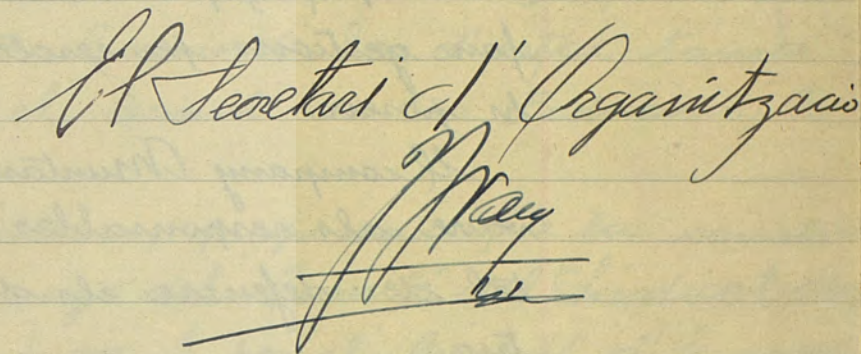 El Secretari d' Organització